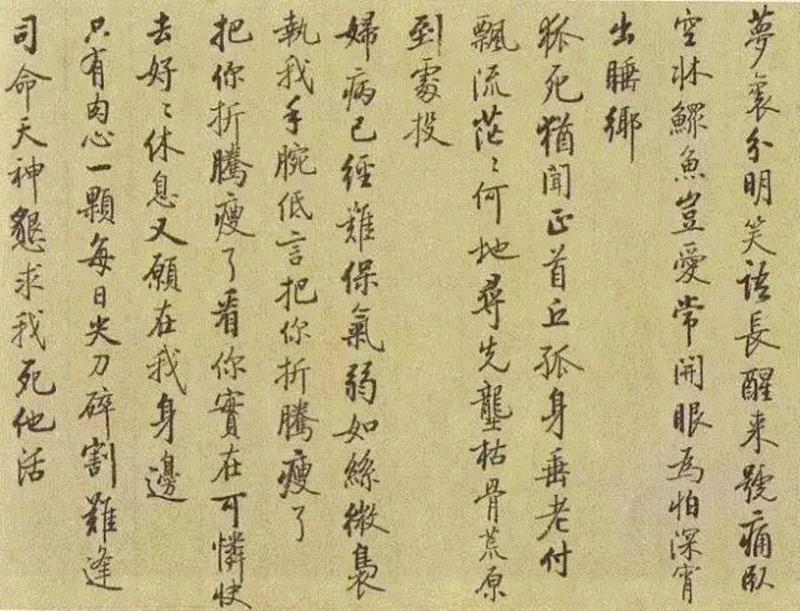 夢裏分明笑語長醒来號痛卧
空牀鰥魚豈愛常開眼為怕深宵
出睡鄉
狐死猶聞正首丘孤身垂老付
飄流茫〻何地尋先壟枯骨荒原
到處投
婦病已經難保氣弱如絲微裊
執我手腕低言把你折騰瘦了
把你折騰瘦了看你實在可憐快
去好〻休息又願在我身邊
只有肉心一顆每日尖刀碎割難逢
司命天神懇求我死他活